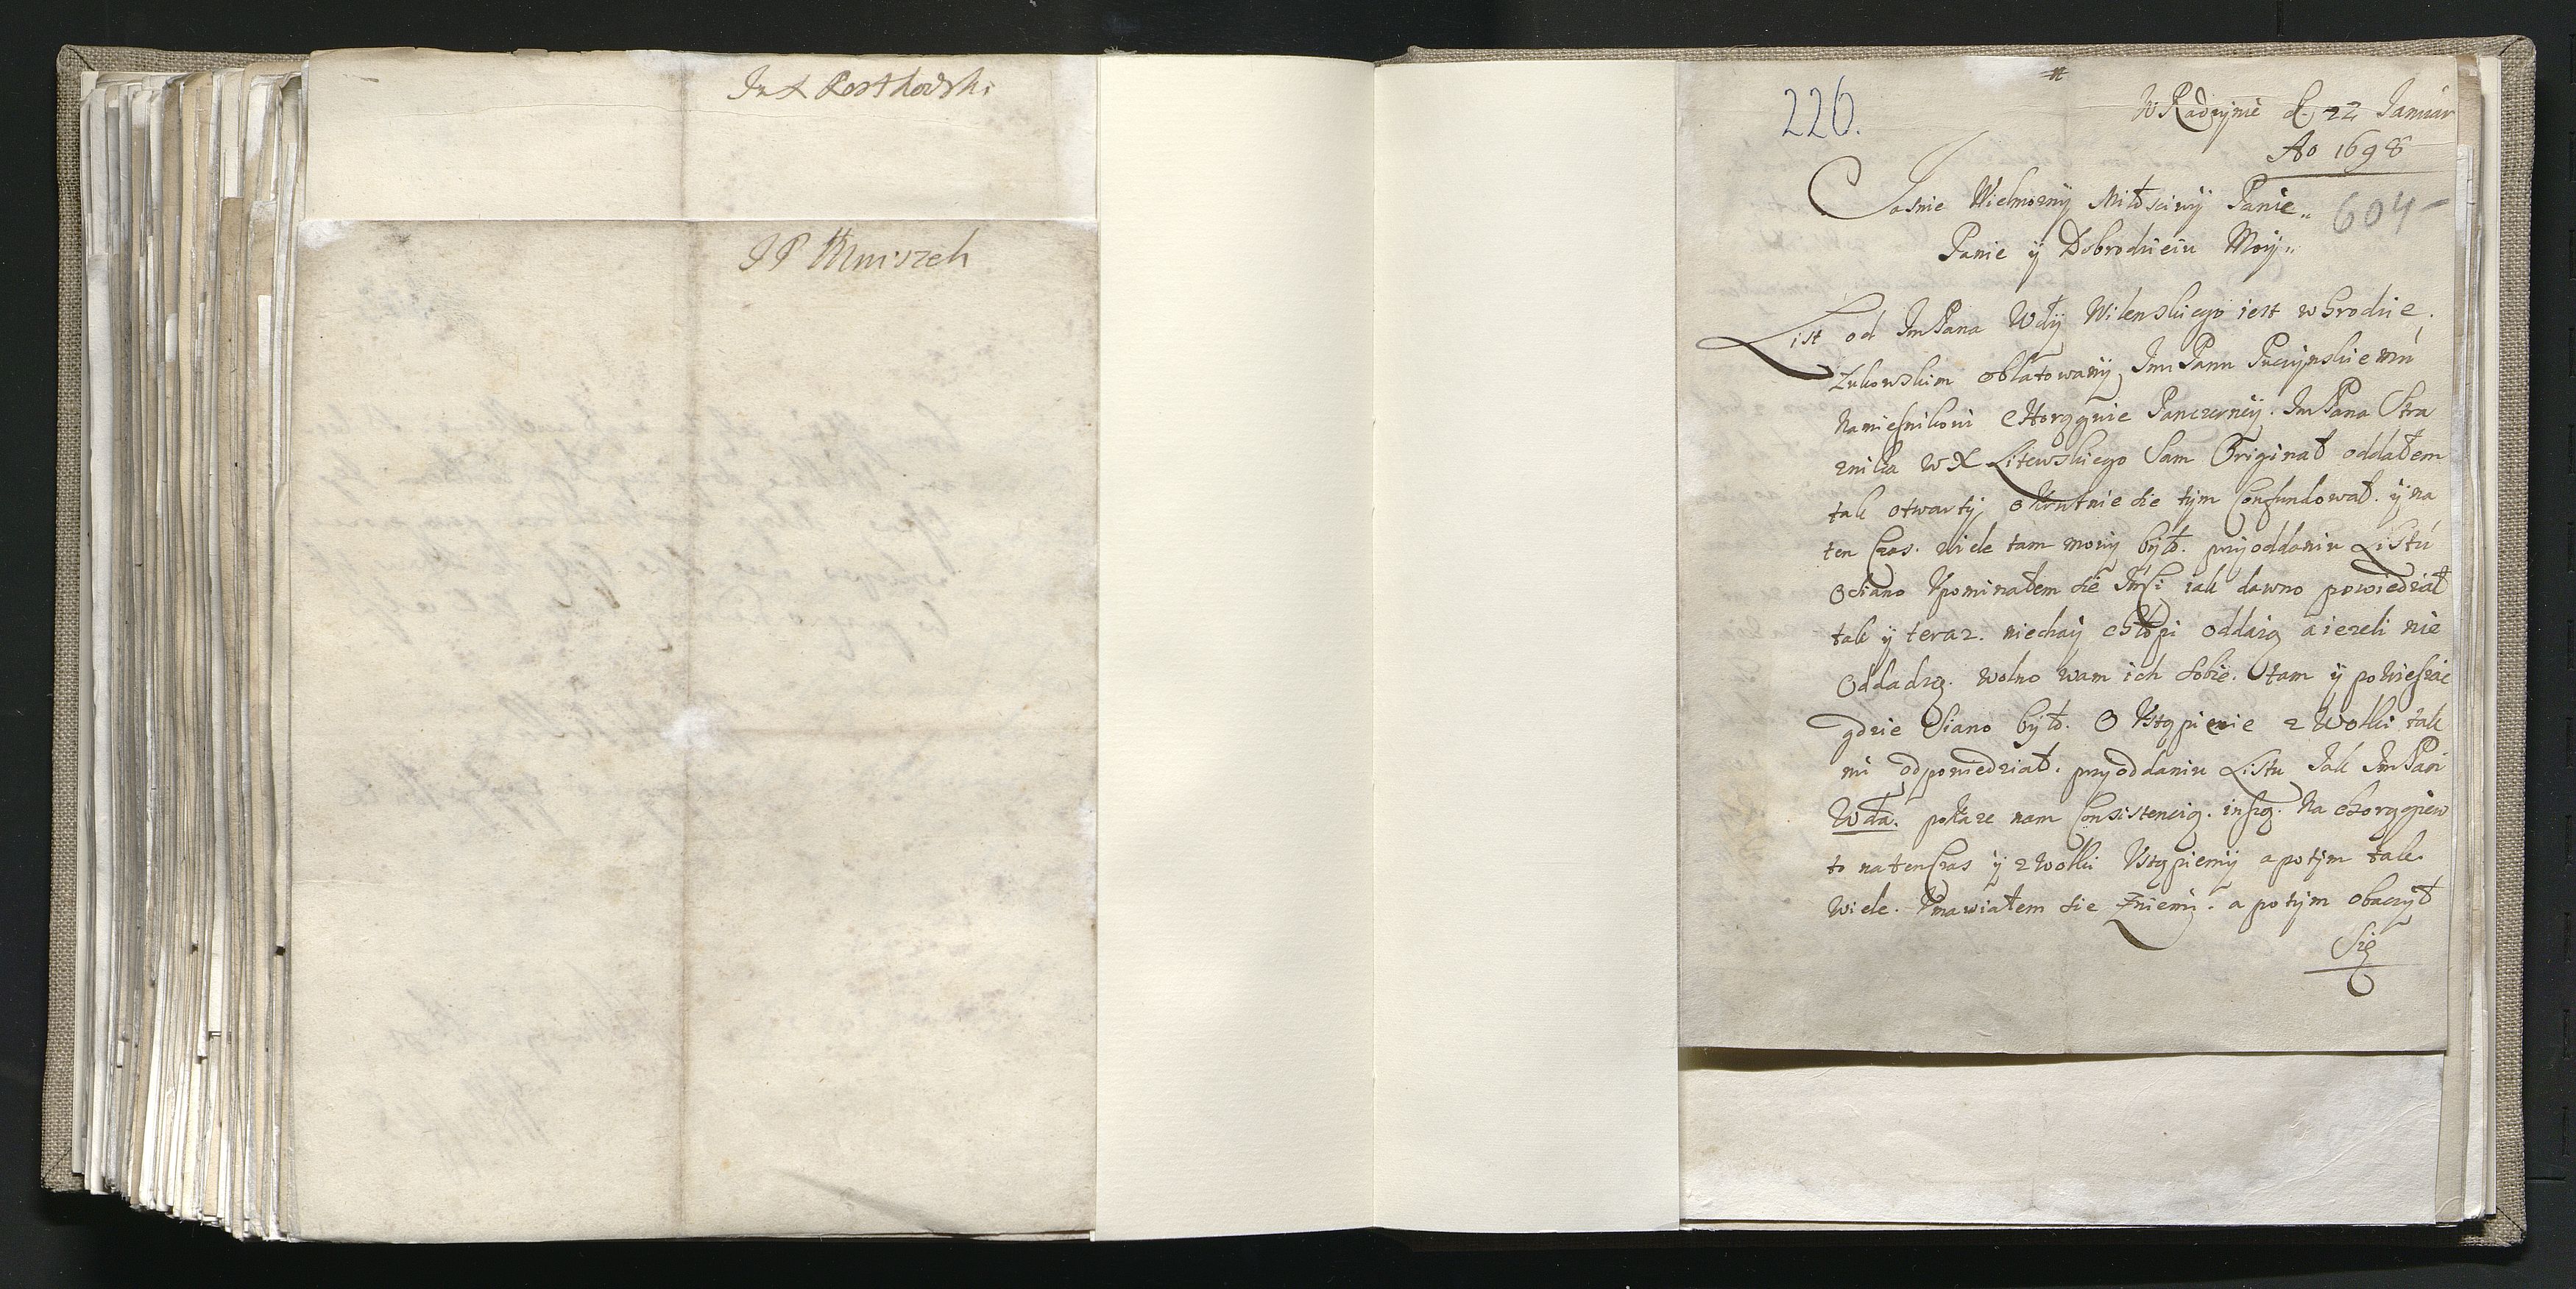 JP Mniszek
226.
W Radzynie d. 22 Januar
Ao 1698
604
Jasnie Wielmozny Miłosciwy Panie
Panie ÿ Dobrodzieiu Moÿ
List od Im Pana Wdÿ Wilenskiego iest w Grodzie
Łukowskim oblatowanÿ Im Panu Puczynskiemu
Namiesnikowi Chorągwie Panczerneÿ. Im Pana Stra
znika WX Litewskiego Sam Originał oddałem
tak otwartÿ okrutnie sie tym Confundował. ÿ na
ten Czas. wiele tam mowÿ było. przÿ oddaniu Listu
O Siano Upominałem sie iak dawno powiedział
tak ÿ teraz. niechaÿ chłopi oddaią a iezeli nie
Oddadzą. wolno wam ich sobie. tam ÿ powieszac
gdzie Siano było. O Ustąpienie z Wolki tak
mi odpowiedział. przÿ oddaniu Listu Jak Im Pan
Wda. pokaze nam Consistencią. inszą. Na Chorągiew
to na ten Czas ÿ z Wolki Ustąpiemÿ a potÿm tak
Wiele. Umawiałem sie z niemi. a potÿm obaczÿł
Się